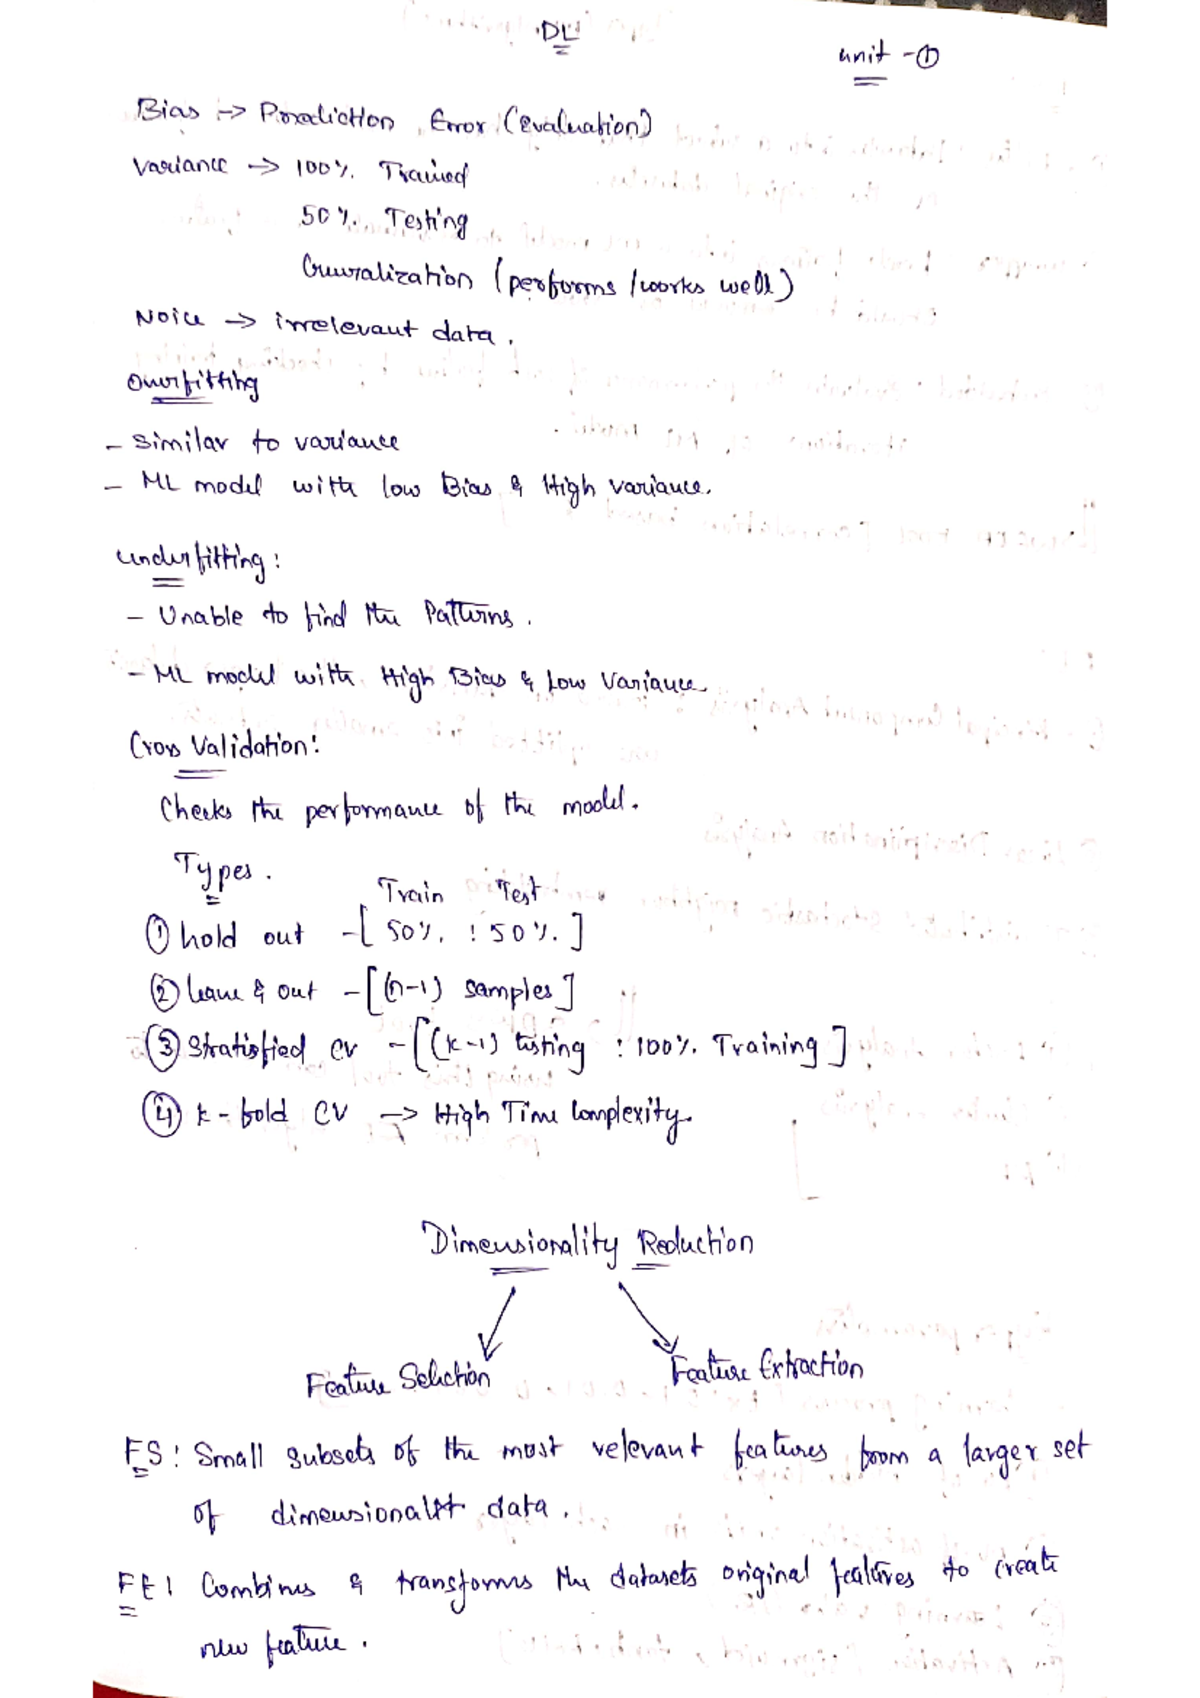 DL
unit - ①
Bias → Prediction Error (evaluation)
Variance → 100% Trained
50% Testing
Generalization (performs / works well)
Noice → irrelevant data.
Overfitting
- Similar to variance
- ML model with low Bias & High variance.
Underfitting:
- Unable to find the Patterns.
- ML model with High Bias & Low Variance
Cross Validation:
Checks the performance of the model.
Types.
Train Test
① hold out - [50% : 50%.]
② leave & out - [(n-1) samples]
③ Stratisfied CV - [(k-1) testing : 100% Training]
④ k-fold CV → High Time Complexity
Dimensionality Reduction
Feature Selection Feature Extraction
FS: Small subsets of the most relevant features from a larger set
of data.
FE: Combines & transforms the datasets original features to create
new feature.